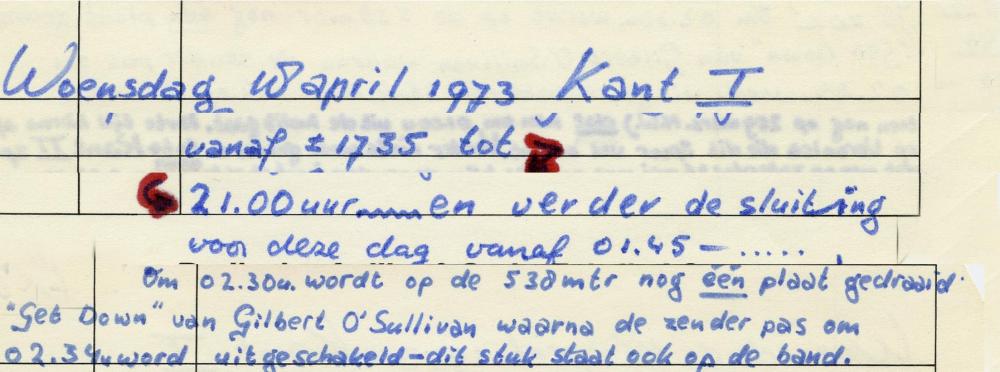 Woensdag 18 april 1973 Kant I
vanaf ± 1735 tot
21.00 uur en verder de sluiting
voor deze dag vanaf 01.45 – .....
Om 02.30u. wordt op de 538mtr nog één plaat gedraaid.
"Get Down" van Gilbert O'Sullivan waarna de zender pas om
02.34u word uitgeschakeld – dit stuk staat ook op de band.